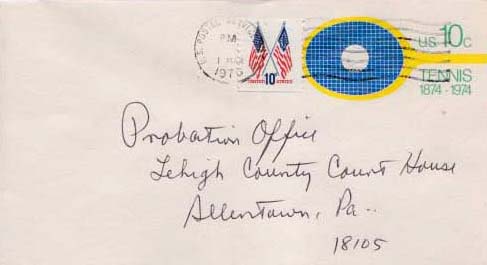 U.S. POSTAL SERVICE
PM
1975
10c
UNITED STATES
US 10c
TENNIS
1874-1974
Probation Office
Lehigh County Court House
Allentown, Pa..
18105